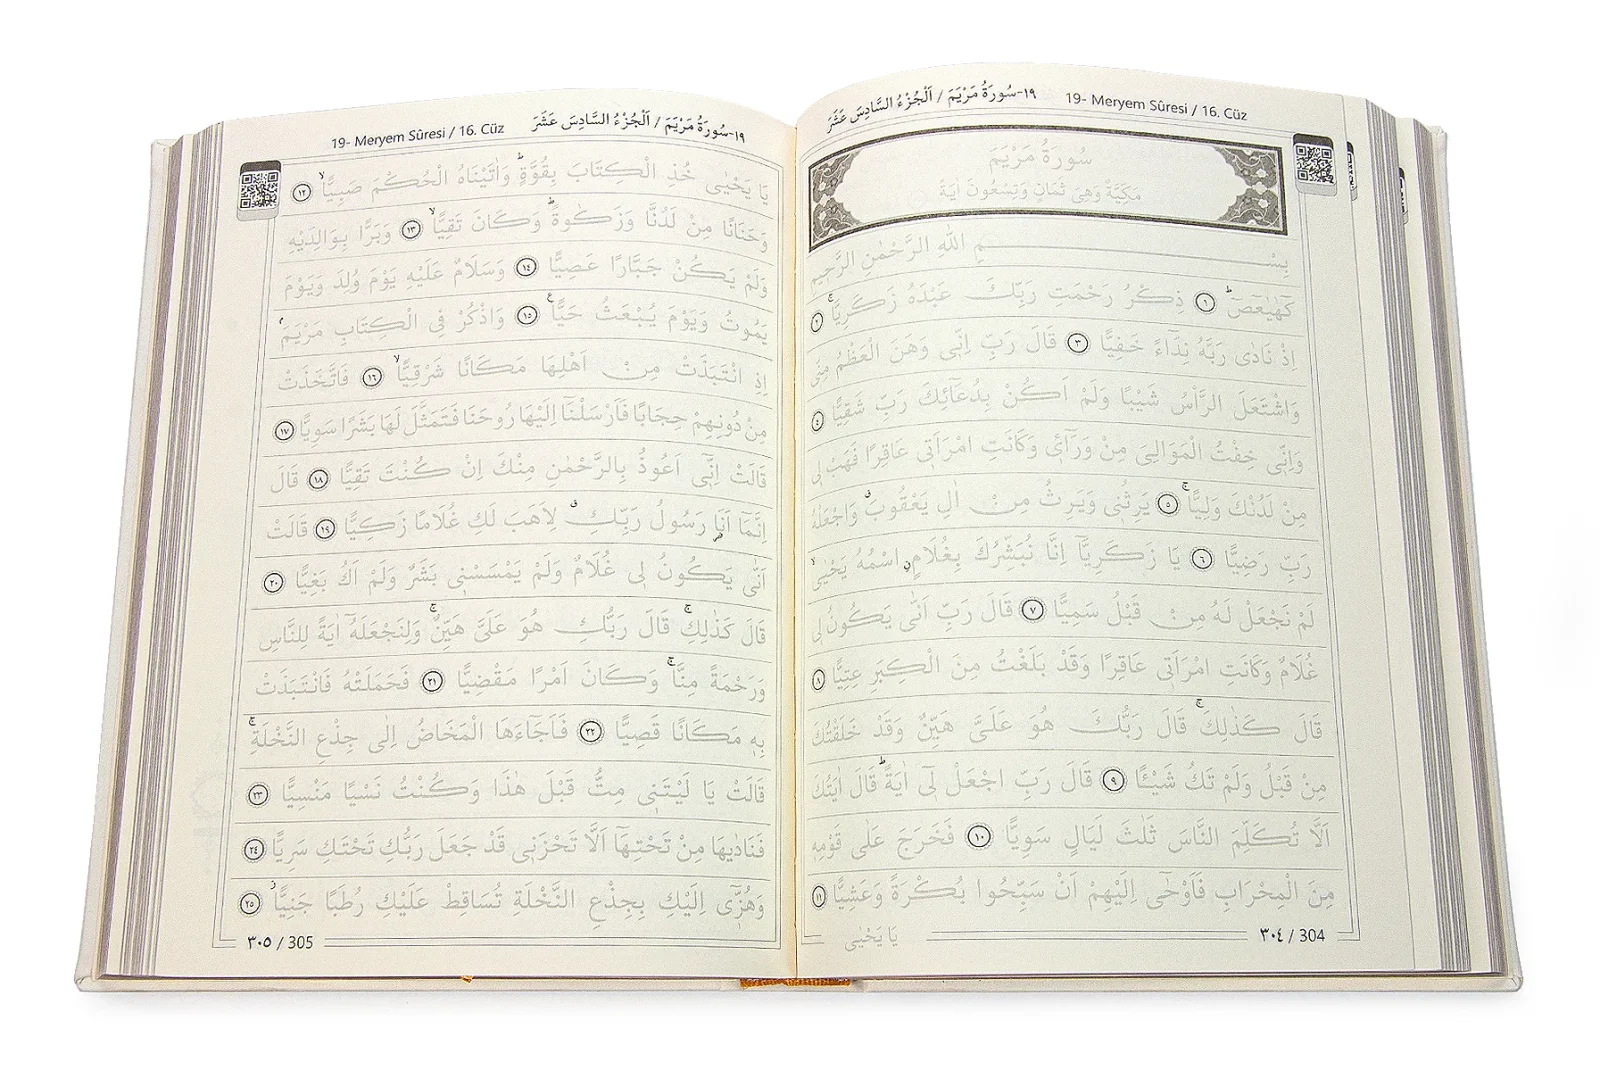 ١٩-سُورَةُ مَرْيَمَ / اَلْجُزْءُ السَّادِسَ عَشَرَ 19- Meryem Sûresi / 16. Cüz
سُورَةُ مَرْيَمَ
مَكِّيَّةٌ وَهِيَ ثَمَانٍ وَتِسْعُونَ اٰيَةً
بِسْمِ اللّٰهِ الرَّحْمٰنِ الرَّحٖيمِ
كٓهٰيٰعٓصٓ ۜ ﴿١﴾ ذِكْرُ رَحْمَتِ رَبِّكَ عَبْدَهُ زَكَرِيَّاۚ ﴿٢﴾
اِذْ نَادٰى رَبَّهُ نِدَٓاءً خَفِيًّا ﴿٣﴾ قَالَ رَبِّ اِنّٖى وَهَنَ الْعَظْمُ مِنّٖى
وَاشْتَعَلَ الرَّاْسُ شَيْبًا وَلَمْ اَكُنْ بِدُعَٓائِكَ رَبِّ شَقِيًّا ﴿٤﴾
وَاِنّٖى خِفْتُ الْمَوَالِىَ مِنْ وَرَٓائٖى وَكَانَتِ امْرَاَتٖى عَاقِرًا فَهَبْ لٖى
مِنْ لَدُنْكَ وَلِيًّاۚ ﴿٥﴾ يَرِثُنٖى وَيَرِثُ مِنْ اٰلِ يَعْقُوبَۗ وَاجْعَلْهُ
رَبِّ رَضِيًّا ﴿٦﴾ يَا زَكَرِيَّٓا اِنَّا نُبَشِّرُكَ بِغُلَامٍ اسْمُهُ يَحْيٰىۙ
لَمْ نَجْعَلْ لَهُ مِنْ قَبْلُ سَمِيًّا ﴿٧﴾ قَالَ رَبِّ اَنّٰى يَكُونُ لٖى
غُلَامٌ وَكَانَتِ امْرَاَتٖى عَاقِرًا وَقَدْ بَلَغْتُ مِنَ الْكِبَرِ عِتِيًّا ﴿٨﴾
قَالَ كَذٰلِكَۚ قَالَ رَبُّكَ هُوَ عَلَىَّ هَيِّنٌ وَقَدْ خَلَقْتُكَ
مِنْ قَبْلُ وَلَمْ تَكُ شَيْـًٔا ﴿٩﴾ قَالَ رَبِّ اجْعَلْ لٖٓى اٰيَةًۜ قَالَ اٰيَتُكَ
اَلَّا تُكَلِّمَ النَّاسَ ثَلٰثَ لَيَالٍ سَوِيًّا ﴿١٠﴾ فَخَرَجَ عَلٰى قَوْمِهٖ
مِنَ الْمِحْرَابِ فَاَوْحٰٓى اِلَيْهِمْ اَنْ سَبِّحُوا بُكْرَةً وَعَشِيًّا ﴿١١﴾
٣٠٤ / 304
يَا يَحْيٰى
19- Meryem Sûresi / 16. Cüz ١٩-سُورَةُ مَرْيَمَ / اَلْجُزْءُ السَّادِسَ عَشَرَ
يَا يَحْيٰى خُذِ الْكِتَابَ بِقُوَّةٍۜ وَاٰتَيْنَاهُ الْحُكْمَ صَبِيًّاۙ ﴿١٢﴾
وَحَنَانًا مِنْ لَدُنَّا وَزَكٰوةًۜ وَكَانَ تَقِيًّاۙ ﴿١٣﴾ وَبَرًّا بِوَالِدَيْهِ
وَلَمْ يَكُنْ جَبَّارًا عَصِيًّا ﴿١٤﴾ وَسَلَامٌ عَلَيْهِ يَوْمَ وُلِدَ وَيَوْمَ
يَمُوتُ وَيَوْمَ يُبْعَثُ حَيًّا ﴿١٥﴾ وَاذْكُرْ فِى الْكِتَابِ مَرْيَمَۢ
اِذِ انْتَبَذَتْ مِنْ اَهْلِهَا مَكَانًا شَرْقِيًّاۙ ﴿١٦﴾ فَاتَّخَذَتْ
مِنْ دُونِهِمْ حِجَابًا فَاَرْسَلْنَٓا اِلَيْهَا رُوحَنَا فَتَمَثَّلَ لَهَا بَشَرًا سَوِيًّا ﴿١٧﴾
قَالَتْ اِنّٖٓى اَعُوذُ بِالرَّحْمٰنِ مِنْكَ اِنْ كُنْتَ تَقِيًّا ﴿١٨﴾ قَالَ
اِنَّمَٓا اَنَا۬ رَسُولُ رَبِّكِۗ لِاَهَبَ لَكِ غُلَامًا زَكِيًّا ﴿١٩﴾ قَالَتْ
اَنّٰى يَكُونُ لٖى غُلَامٌ وَلَمْ يَمْسَسْنٖى بَشَرٌ وَلَمْ اَكُ بَغِيًّا ﴿٢٠﴾
قَالَ كَذٰلِكِۚ قَالَ رَبُّكِ هُوَ عَلَىَّ هَيِّنٌۚ وَلِنَجْعَلَهُٓ اٰيَةً لِلنَّاسِ
وَرَحْمَةً مِنَّاۚ وَكَانَ اَمْرًا مَقْضِيًّا ﴿٢١﴾ فَحَمَلَتْهُ فَانْتَبَذَتْ
بِهٖ مَكَانًا قَصِيًّا ﴿٢٢﴾ فَاَجَٓاءَهَا الْمَخَاضُ اِلٰى جِذْعِ النَّخْلَةِۚ
قَالَتْ يَا لَيْتَنٖى مِتُّ قَبْلَ هٰذَا وَكُنْتُ نَسْيًا مَنْسِيًّا ﴿٢٣﴾
فَنَادٰيهَا مِنْ تَحْتِهَٓا اَلَّا تَحْزَنٖى قَدْ جَعَلَ رَبُّكِ تَحْتَكِ سَرِيًّا ﴿٢٤﴾
وَهُزّٖٓى اِلَيْكِ بِجِذْعِ النَّخْلَةِ تُسَاقِطْ عَلَيْكِ رُطَبًا جَنِيًّاۘ ﴿٢٥﴾
٣٠٥ / 305